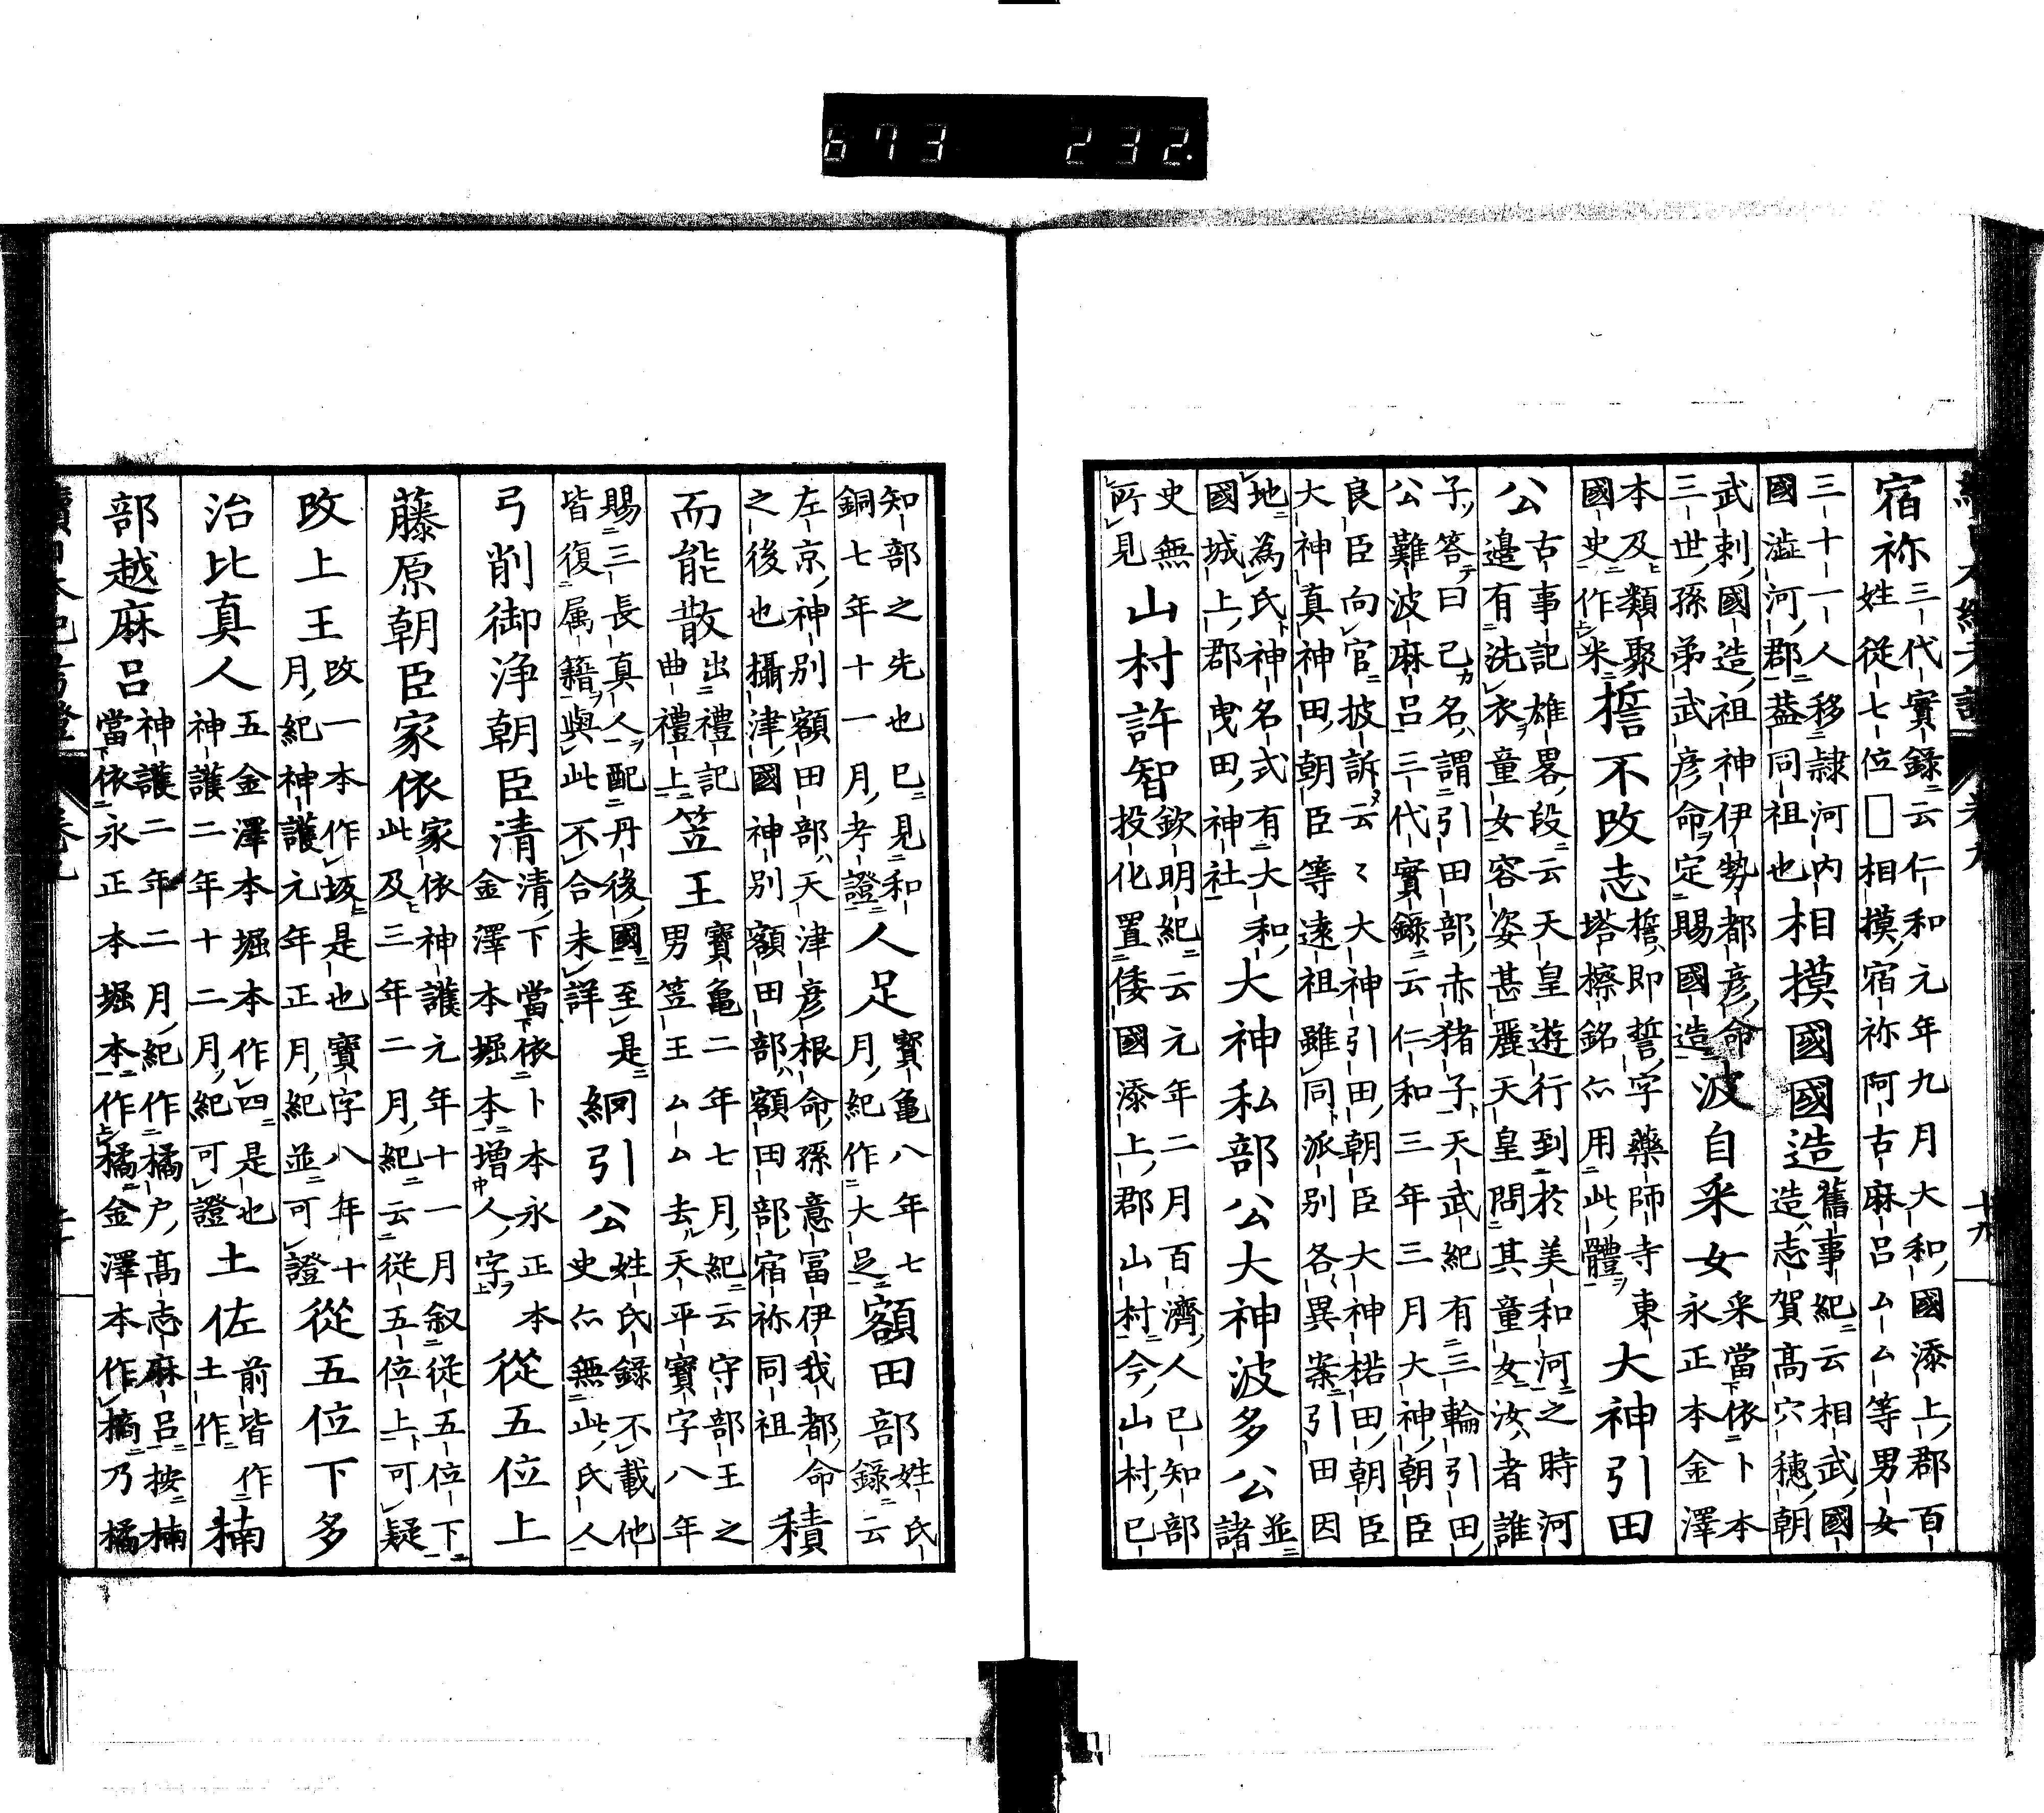 673 232.
宿祢三代實録云仁和元年九月大和國添上郡百
姓從七位□相摸宿祢阿古麻呂ムム等男女
三十一人移隷河内
國澁河郡葢同祖也相摸國國造舊事紀云相武國
造志賀髙穴穂朝
武刺國造祖神伊勢都彦命
三世孫弟武彦命定賜國造波自采女采當依卜本
永正本金澤
本及類聚
國史作米誓不改志誓即誓字藥師寺東
塔擦銘亦用此體大神引田
公古事記雄畧段云天皇遊行到於美和河之時河
邉有洗衣童女容姿甚麗天皇問其童女汝者誰
子答曰己名謂引田部赤猪子天武紀有三輪引田
公難波麻呂三代實録云仁和三年三月大神朝臣
良臣向官披訴云〻大神引田朝臣大神楉田朝臣
大神真神田朝臣等遠祖雖同派别各異案引田因
地為氏神名式有大和
國城上郡曳田神社大神私部公大神波多公並
諸
史無
所見山村許智欽明紀云元年二月百濟人己知部
投化置倭國添上郡山村今山村已
知部之先也已見和
銅七年十一月考證人足寳龜八年七
月紀作大足額田部姓氏
録云
左京神别額田部天津彦根命孫意冨伊我都命
之後也攝津國神别額田部額田部宿祢同祖積
而能散出禮記
曲禮上笠王寳龜二年七月紀云守部王之
男笠王ムム去天平寳字八年
賜三長真人配丹後國至是
皆復属籍與此不合未詳網引公姓氏録不載他
史亦無此氏人
弓削御浄朝臣清清下當依卜本永正本
金澤本堀本増人字從五位上
藤原朝臣家依家依神護元年十一月叙従五位下
此及三年二月紀云従五位上可疑
改上王改一本作坂是也寳字八年十
月紀神護元年正月紀並可證從五位下多
治比真人五金澤本堀本作四是也
神護二年十二月紀可證土佐前皆作
土作楠
部越麻呂神護二年二月紀作橘户髙志麻呂按楠
當依永正本堀本作橘金澤本作橘乃橘